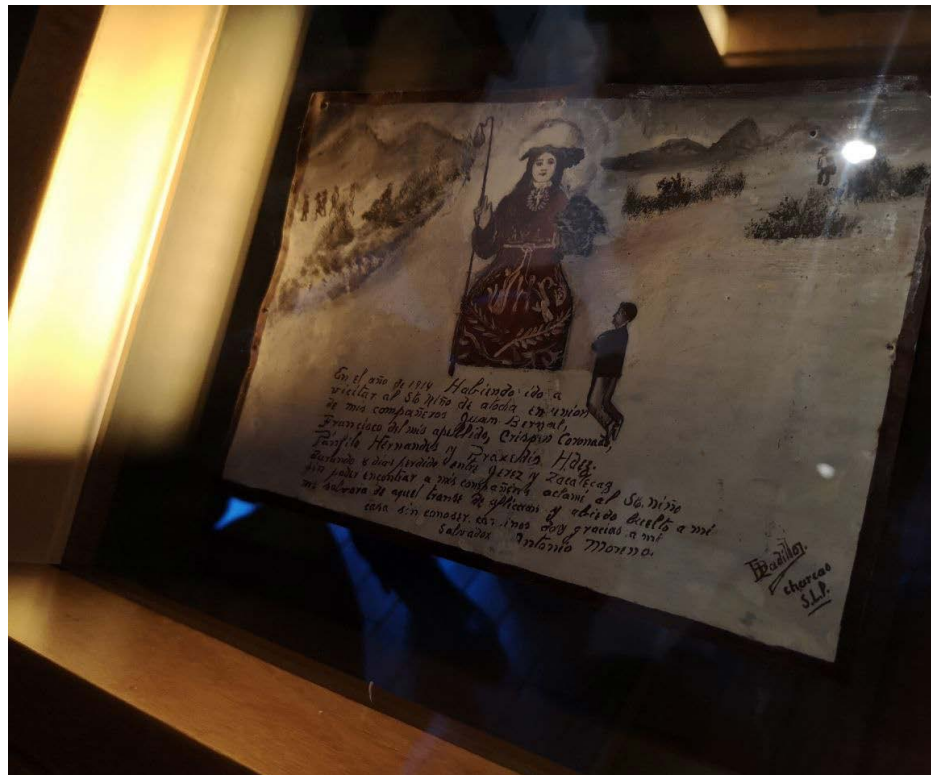 En el año de 1914 Habiendo ido a
vicitar al Sto. Niño de atocha en union
de mis compañeros Juan Bernal,
Francisco del mis apellido, Crispin Coronado,
Pánfilo Hernandes y Praxedis Hdez:
durando 4 dias perdido entre Jerez y Zacatecas
sin poder encontrar a mis compañeros aclamé al Sto. niño
me salvara de aquel trance de afliccion y abiedo buelto a mi
casa sin conoser caminos doy gracias a mi
Salvador Antonio Moreno.
Padilla.
charcas
S.L.P.